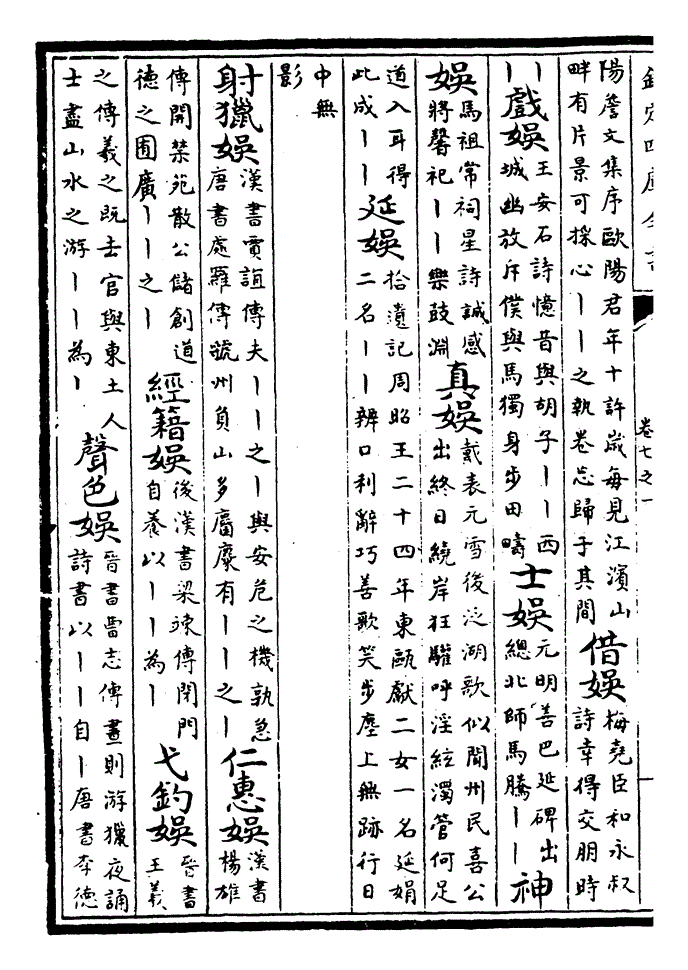 欽定四庫全書
卷七之一
陽詹文集序歐陽君年十許歲每見江濱山
畔有片景可採心丨丨之執卷忘歸于其間
借娛
梅堯臣和永叔
詩幸得交朋時
丨
丨
戲娛
王安石詩憶昔與胡子丨丨西
城幽放斥僕與馬獨身步田疇
士娛
元明善巴延碑出
總北師馬騰丨丨
神
娛
馬祖常祠星詩誠感
將馨祀丨丨樂鼓淵
真娛
戴表元雪後泛湖歌似聞州民喜公
出終日繞岸狂驩呼淫絃濁管何足
道入耳得
此成丨丨
延娛
拾遺記周昭王二十四年東甌獻二女一名延娟
二名丨丨辨口利辭巧善歌笑步塵上無跡行日
中無
影
射獵娛
漢書賈誼傳夫丨丨之丨與安危之機孰急
唐書處羅傳虢州負山多麕麋有丨丨之丨
仁惠娛
漢書
楊雄
傳開禁苑散公儲創道
德之囿廣丨丨之丨
經籍娛
後漢書梁竦傳閉門
自養以丨丨為丨
弋釣娛
晉書
王羲
之傳羲之既去官與東土人
士盡山水之游丨丨為丨
聲色娛
晉書曹志傳晝則游獵夜誦
詩書以丨丨自丨唐書李德